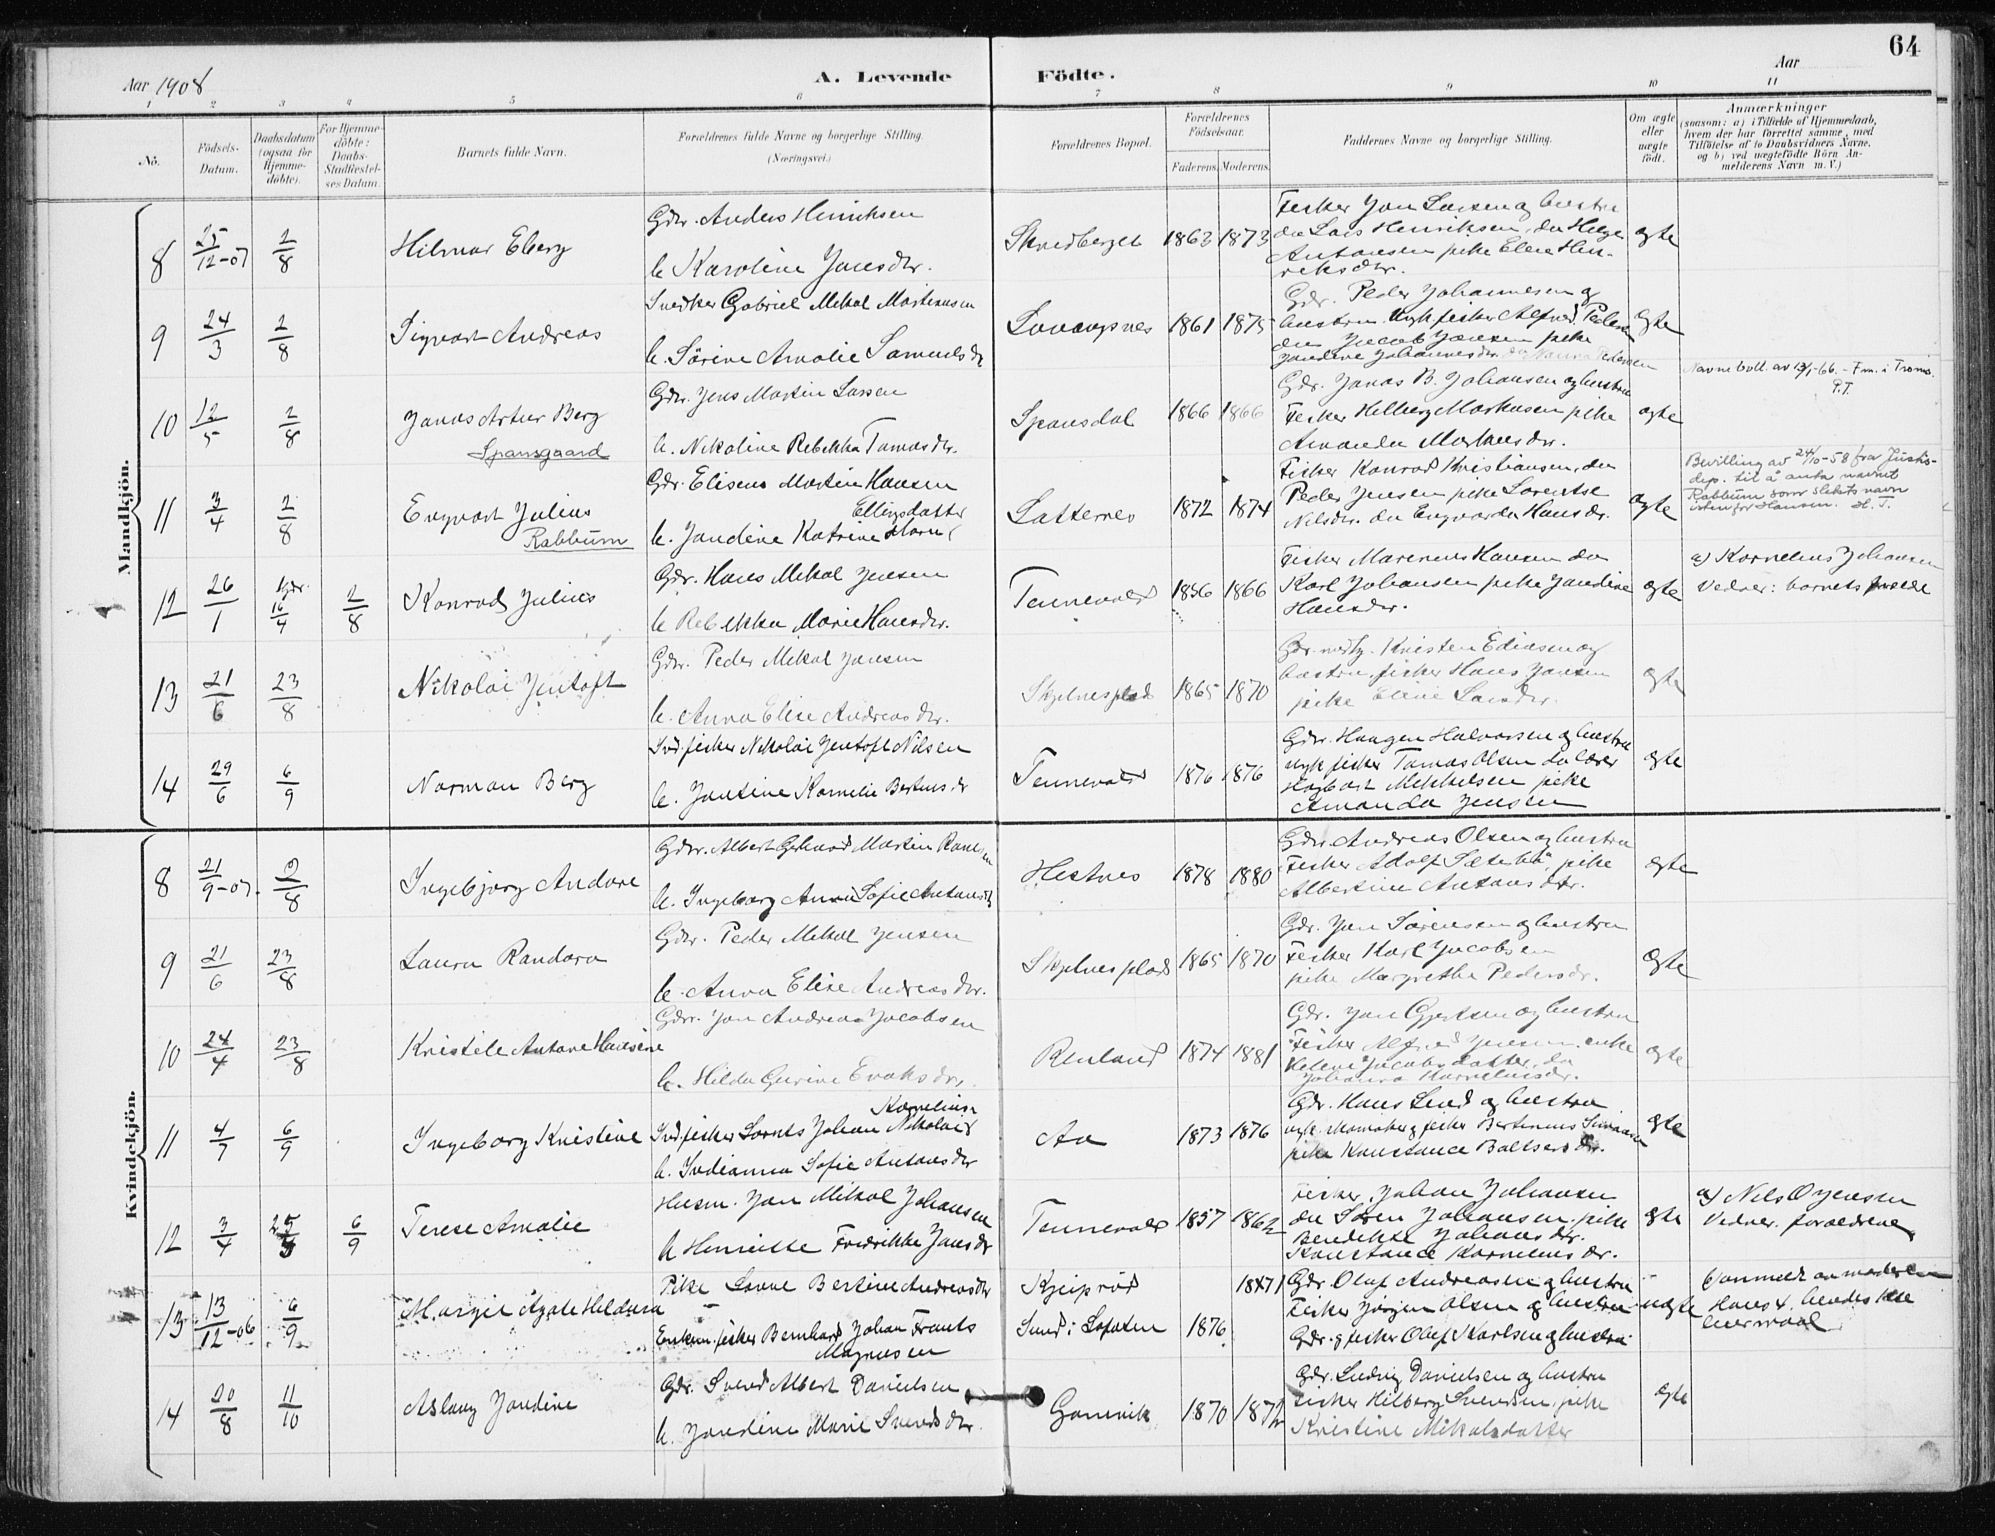 64
Aar 1908
A. Levende Födte.
Aar
1 2 3 4 5 6 7 8 9 10 11
No.
Födsels-Datum.
Daabsdatum (ogsaa for Hjemmedöbte).
For Hjemmedöbte: Daabs-Stadfæstelses Datum.
Barnets fulde Navn.
Forældrenes fulde Navne og borgerlige Stilling. (Næringsvei.)
Forældrenes Bopæl.
Forældrenes Födselsaar.
Faderens. Moderens.
Faddernes Navne og borgerlige Stilling.
Om ægte eller uægte födt.
Anmærkninger
(saasom: a) i Tilfælde af Hjemmedaab, hvem der har forrettet samme, med Tilföielse af to Daabsvidners Navne, og b) ved uægtefödte Börn Anmelderens Navn m. V.)
Mandkjön.
8 25/12-07 2/8 Hilmar Eberg
Gdr. Anders Henriksen
h. Karoline Jansdtr.
1863 1873
Fisker Jon Larsen og hustru
du Lars Henriksen, du Helge
Antonsen pike Eline Hen-
riksdtr.
ægte
9 24/3 2/8 Sigvart Andreas
Snedker Gabriel Mikal Martinusen
h. Sörine Amalie Samuelsdtr
1861 1875
Gdr. Peder Johannesen og
hustru. Ungk. fisker Alfred Pedersen
du Jacob Jansen pike
Jandine Johannesdtr.
ægte
10 12/5 2/8 Jonas Artur Berg
Spansgaard
Gdr. Jens Martin Larsen
h. Nikoline Rebekka Tomasdtr.
Spansdal 1866 1866
Gdr. Jonas B. Johansen og hustru
Fisker Hilberg Markusen pike
Amanda Markusdtr.
ægte
Navnebevill. av 13/1-66. - Fm. i Troms.
P.T.
11 3/4 2/8 Engvart Julius
Rabbum
Gdr. Eliseus Martin Hansen
Ellingsdatter
h. Jandine Katrine
1872 1874
Fisker Konrad Kristiansen, du
Peder Jensen pike Lorentse
Nilsdtr. du Engvarda Hansdr.
ægte
Bevilling av 24/10-58 fra Justis-
dep. til å anta navnet
Rabbum som slektsnavn
istenfor Hansen. H. T.
12 26/1 16/4 2/8 Konrad Julius
Gdr. Hans Mikal Jensen
h Rebekka Marie Hansdtr.
Tennevold 1856 1866
Fisker Marenius Hansen du
Karl Johansen pike Jandine
Hansdtr.
ægte
a) Kornelius Johansen
Vidner: barnets
13 21/6 23/8 Nikolai Jentoft
Gdr. Peder Mikal Jensen
h. Anna Elise Andreasdtr.
Skjelnesplads 1865 1870
Kristen Ediasen og
hustru fisker Hans Jansen
pike Eline Larsdtr.
ægte
14 29/6 6/9 Norman Berg
Ind. fisker Nikolai Jentoft Nilsen
h. Jentine Kornelie Bertinsdr
Tennevold 1876 1876
Gdr. Haagen Halvorsen og hustru
ungk. fisker Tomas Olsen du lærer
Hagbart Mikkelsen pike
Amanda Jensen
ægte
Kvindekjön.
8 21/9-07. 2/8 Ingebjörg Andore
Gdr. Albert Gerhard Martin
h. Ingeborg Anna Sofie Antonsdtr
Hestnes 1878 1880
Gdr. Andreas Olsen og hustru
Fisker Adolf pike
Albertine Antonsdtr.
ægte
9 21/6 23/8 Laura Randora
Gdr. Peder Mikal Jensen
h. Anna Elise Andreasdtr.
Skjelnesplads 1865 1870
Gdr. Jon Sörensen og hustru
Fisker Karl Jacobsen
pike Margrethe Pedersdr.
ægte
10 24/4 23/8 Kristele Antone Hansine
Gdr. Jon Andreas Jacobsen
h. Hilda Gurine Enoksdtr.
Renland 1874 1881
Gdr. Jon Gjertsen og hustru
Fisker Alfred Jensen. enke
Helene Jacobsdatter, du
Johanna Korneliusdr.
ægte
11 4/7 6/9 Ingeborg Kristine
Kornelius
Ind. fisker Lornts Johan Nikolai
h. Indianna Sofie Antonsdtr
Aa 1873 1876
Gdr. Hans Lind og hustru
ungk. fisker Bertinus Simonsen
pike Konstance Baltsersdr.
ægte
12 3/4 25/5 6/9 Terese Amalie
Husm. Jon Mikal Johansen
h Henriette Fredrikke Jansdtr
Tennevold 1857 1862
Fisker Johan Johansen
du Sören Johansen, pike
Bendikte Johansdtr.
Konstance Korneliusdr.
ægte
a) Nils O Jensen
Vidner. forældrene
13 13/12-06 6/9 Margit Agate Hildura
Pike Lovue Bertine Andreasdtr
Enkem. fisker Bernhard Johan Frants
Magnusen
Kjeiprød 1871
Sund i Lofoten 1876
Gdr. Oluf Andreasen og hustru
Fisker Jörgen Olsen og hustru
Gdr. og fisker Oluf Karlsen og hustru
uægte
b) anmeldt av moderen
14 20/8 11/10 Aslaug Jondine
Gdr. Svend Albert Danielsen
h. Jondine Marie Svendsdtr.
Gamvik 1870 1872
Gdr. Ludvig Danielsen og hustru
Fisker Hilberg Svendsen, pike
Kristine Mikalsdatter
ægte